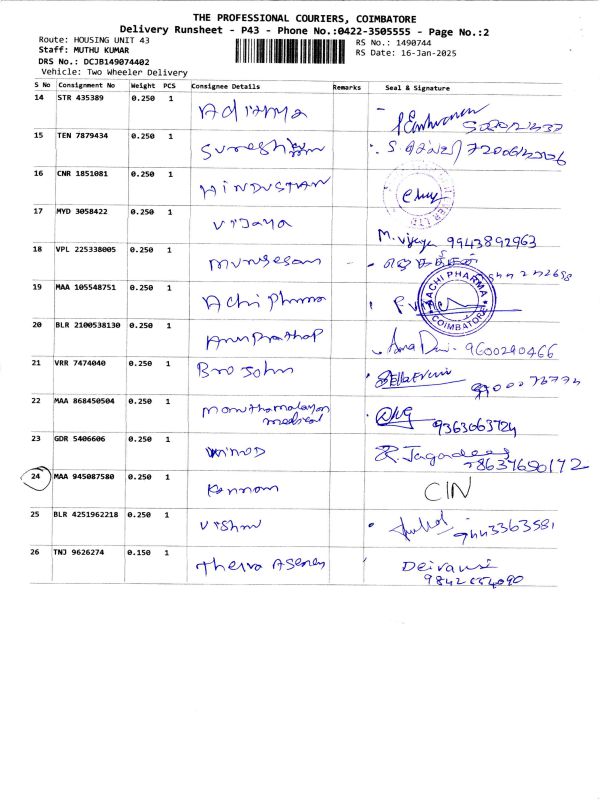 THE PROFESSIONAL COURIERS, COIMBATORE
Delivery Runsheet - P43 - Phone No.:0422-3505555 - Page No.:2
Route: HOUSING UNIT 43
RS No.: 1490744
Staff: MUTHU KUMAR
RS Date: 16-Jan-2025
DRS No.: DCJB149074402
Vehicle: Two Wheeler Delivery
S No Consignment No Weight PCS Consignee Details Remarks Seal & Signature
14 STR 435389 0.250 1
15 TEN 7879434 0.250 1 Suresh
16 CNR 1851081 0.250 1 HINDUSTAN
17 MYD 3058422 0.250 1 Vijaya M. Vijaya 9943892963
18 VPL 225338005 0.250 1 Murugesan
19 MAA 105548751 0.250 1 Achi Pharma AACHI PHARMA COIMBATORE
20 BLR 2100538130 0.250 1 Arun Prathap 9600290466
21 VRR 7474040 0.250 1 Bro John
22 MAA 868450504 0.250 1 medical 9363063724
23 GDR 5406606 0.250 1 Vinod R. Jagadees
24 MAA 945087580 0.250 1 Kannan CIN
25 BLR 4251962218 0.250 1 Vishnu
26 TNJ 9626274 0.150 1